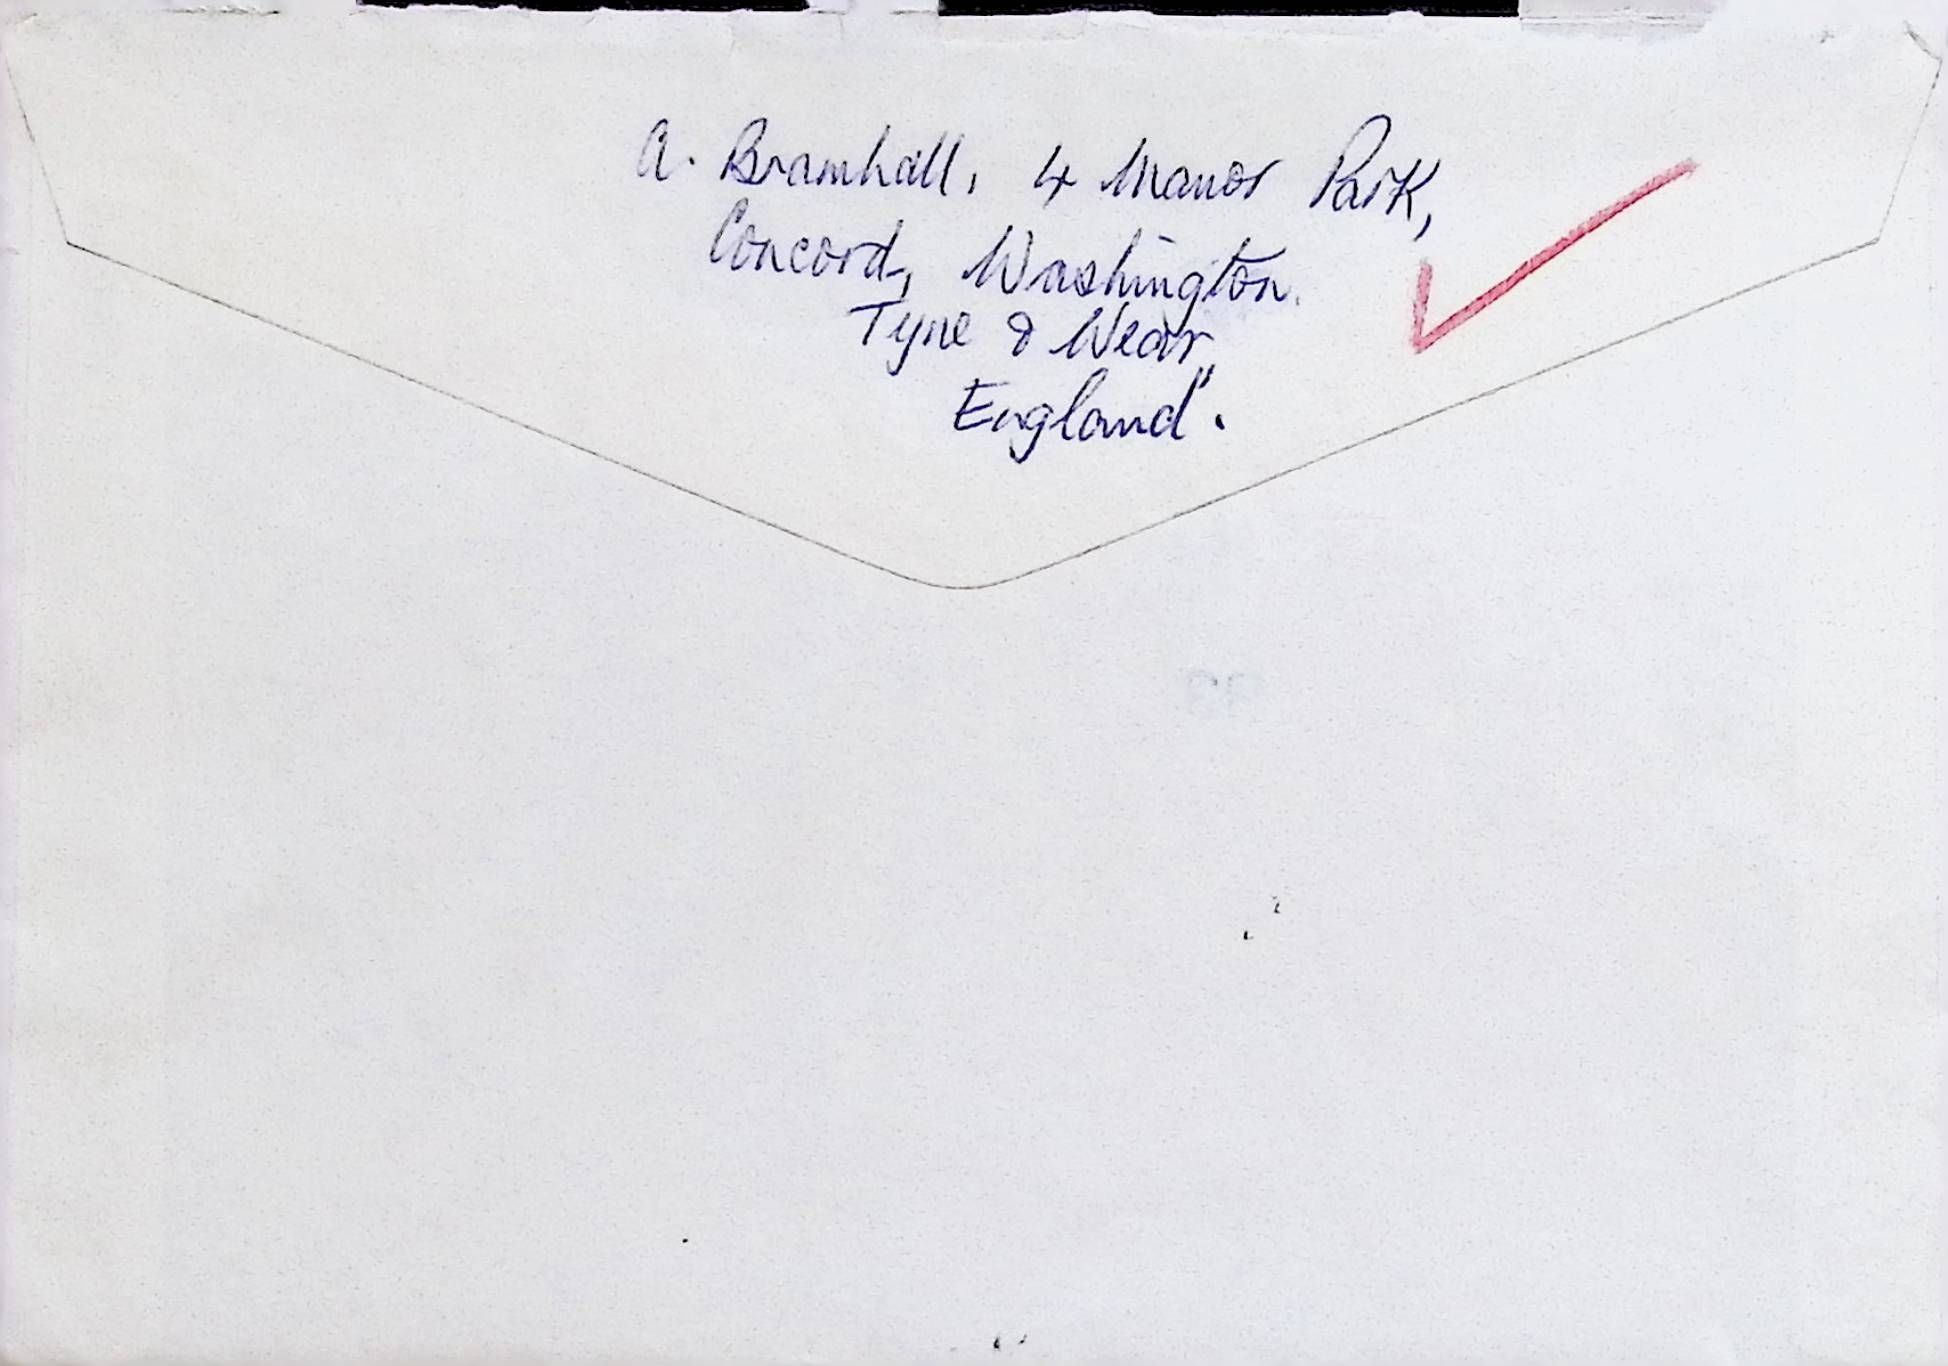 A. Bramhall, 4 Manor Park,
Concord, Washington.
Tyne & Wear,
England".